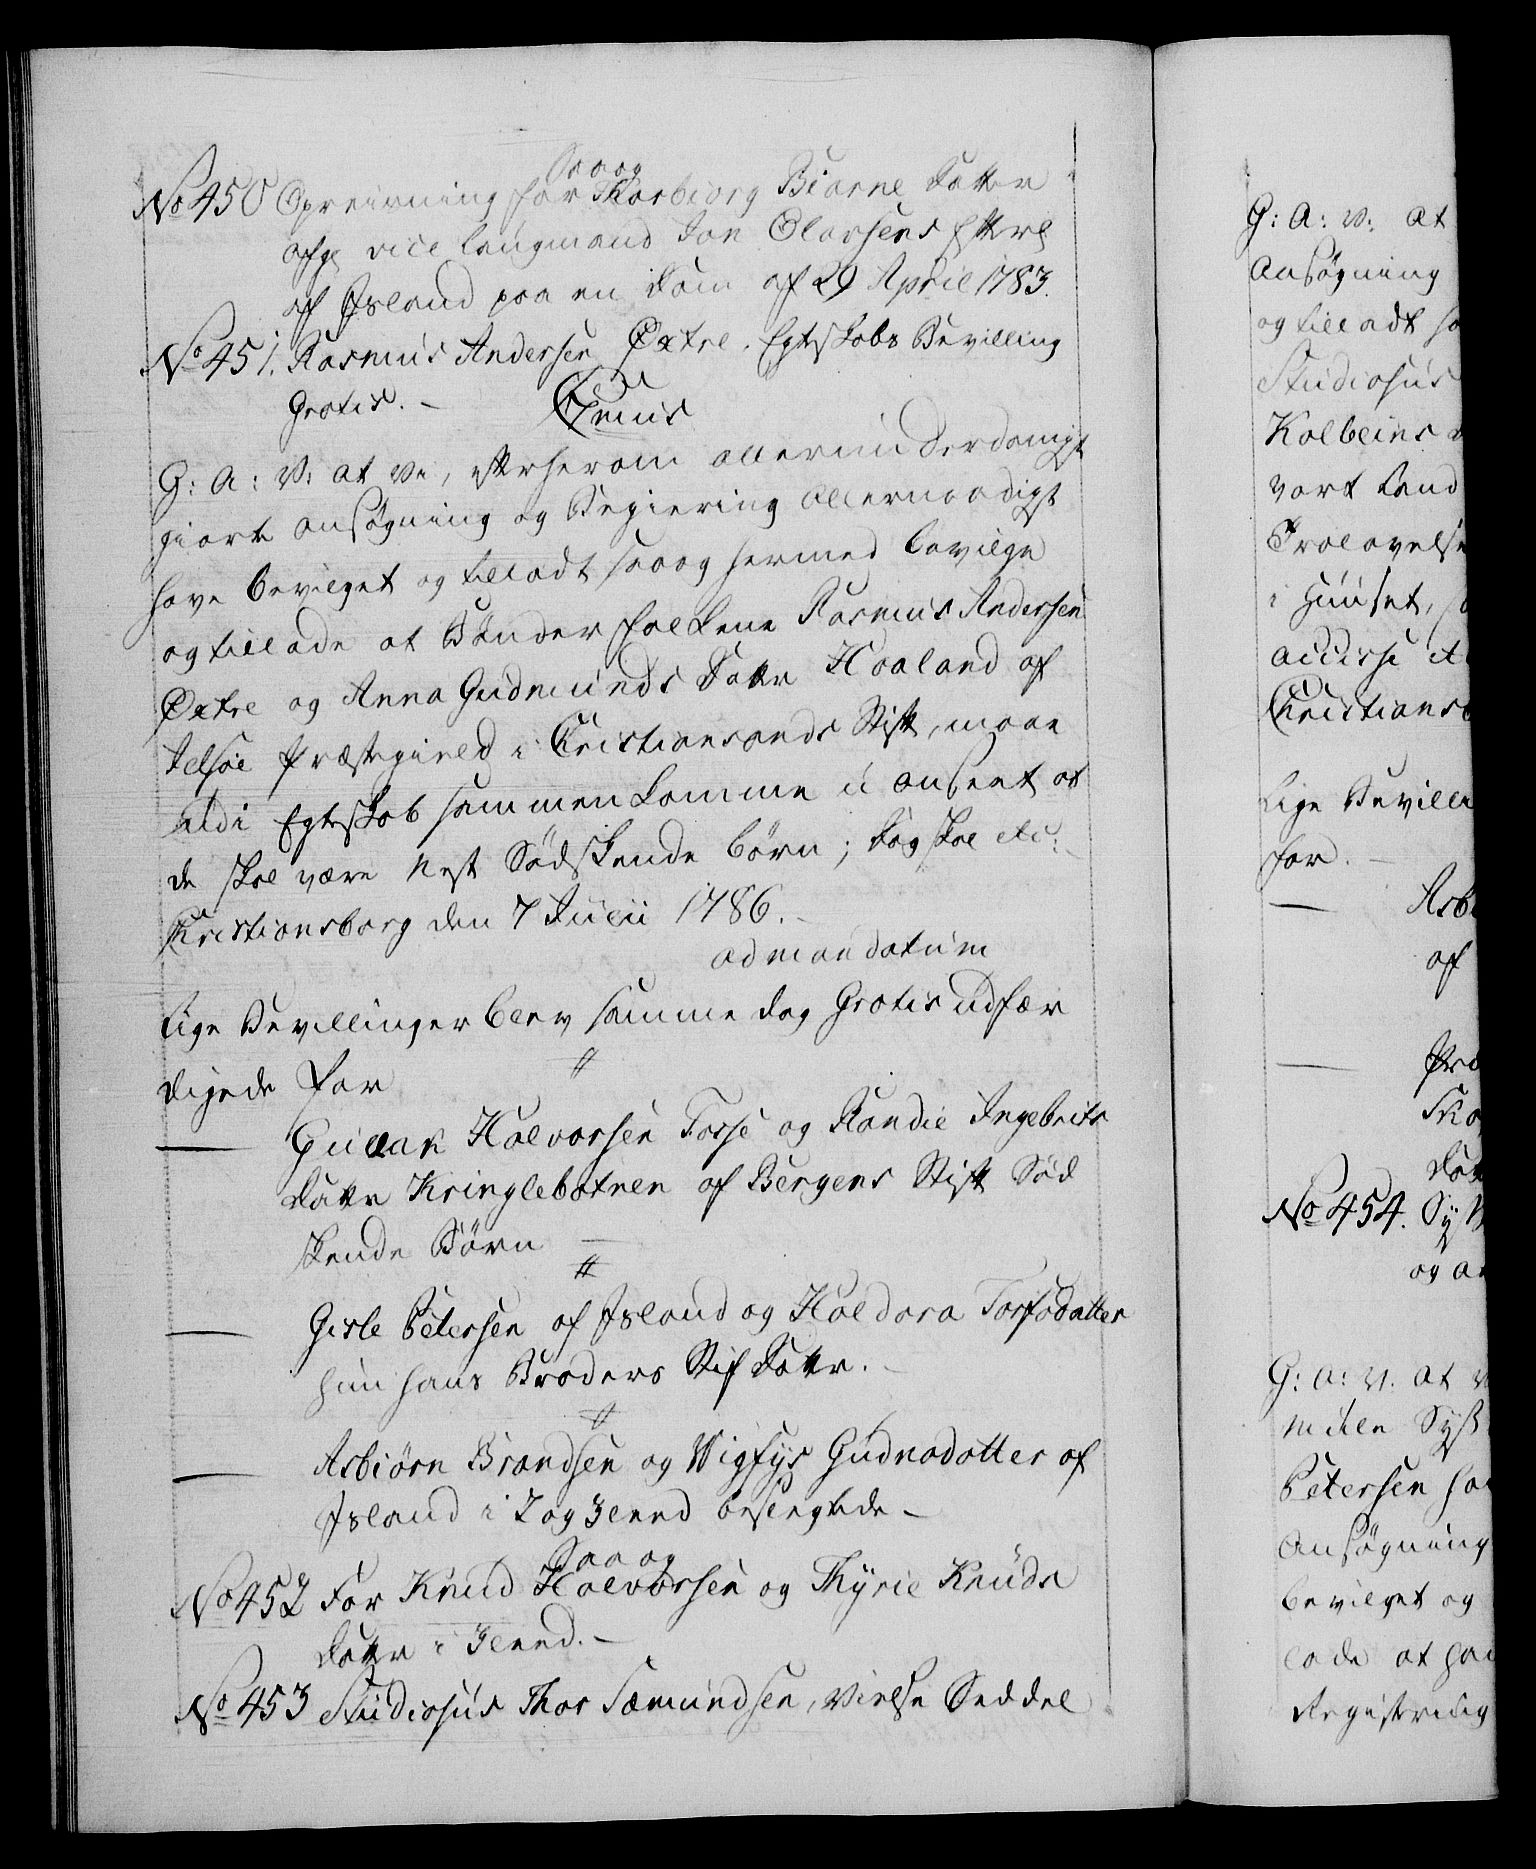 Saaog
No 450 Opreisning for Thorbiorg Biarne Datter
afg: vice Laugmand Jon Olafsens Efterl
af Island paa en Dom af 29 April 1783.
No 451. Rasmus Andersen Øxtre. Egteskabs Bevilling
Gratis. —
C 7mus
G: A: V: at Vi, efter herom allerunderdanigst
giort Ansøgning og Begiering Allernaadigst
have bevilget og tilladt saaog hermed bevilge
og tillade at Bønder folkene Rasmus Andersen
Øxtre og Anna Gudmunds Datter Haaland af
Jelsøe Præstegield i Christiansands Stift, maae
udi Egteskab sammen komme u anseet at
de skal være Nest Sødskende børn; dog skal etc:
Christiansborg den 7 Julii 1786. —
ad mandatum
Lige Bevillinger blev samme dag Gratis udfær
digede for
— Gullak Halvorsen Tosse og Randie Ingebrits
Datter Kringlebotnen af Bergens Stift Sød
skende Børn —
— Gisle Petersen af Island og Haldora Torfadatter
hun hans Broders Stif Datter. —
— Asbiørn Brandsen og Wigfys Gudnadatter af
Island i 2 og 3 Leed besleglede —
Saaog
No 452 For Knud Halvorsen og Thyrie Knuds
Datter i 3 Leed. —
No 453 Studiosus Thor Sæmundsen, Vielse Seddel
G: A: V: At
Ansøgning
og tilladt
Studiosus
Kolbeins
vort Land
Trolovelse
i Huuset,
accisse
Christiansb
Lige Bevilli
for. —
— Asbi
af
—
No 454.
og
G: A: V: At
Petersen
Ansøgning
bevilget og
lade at
Registering